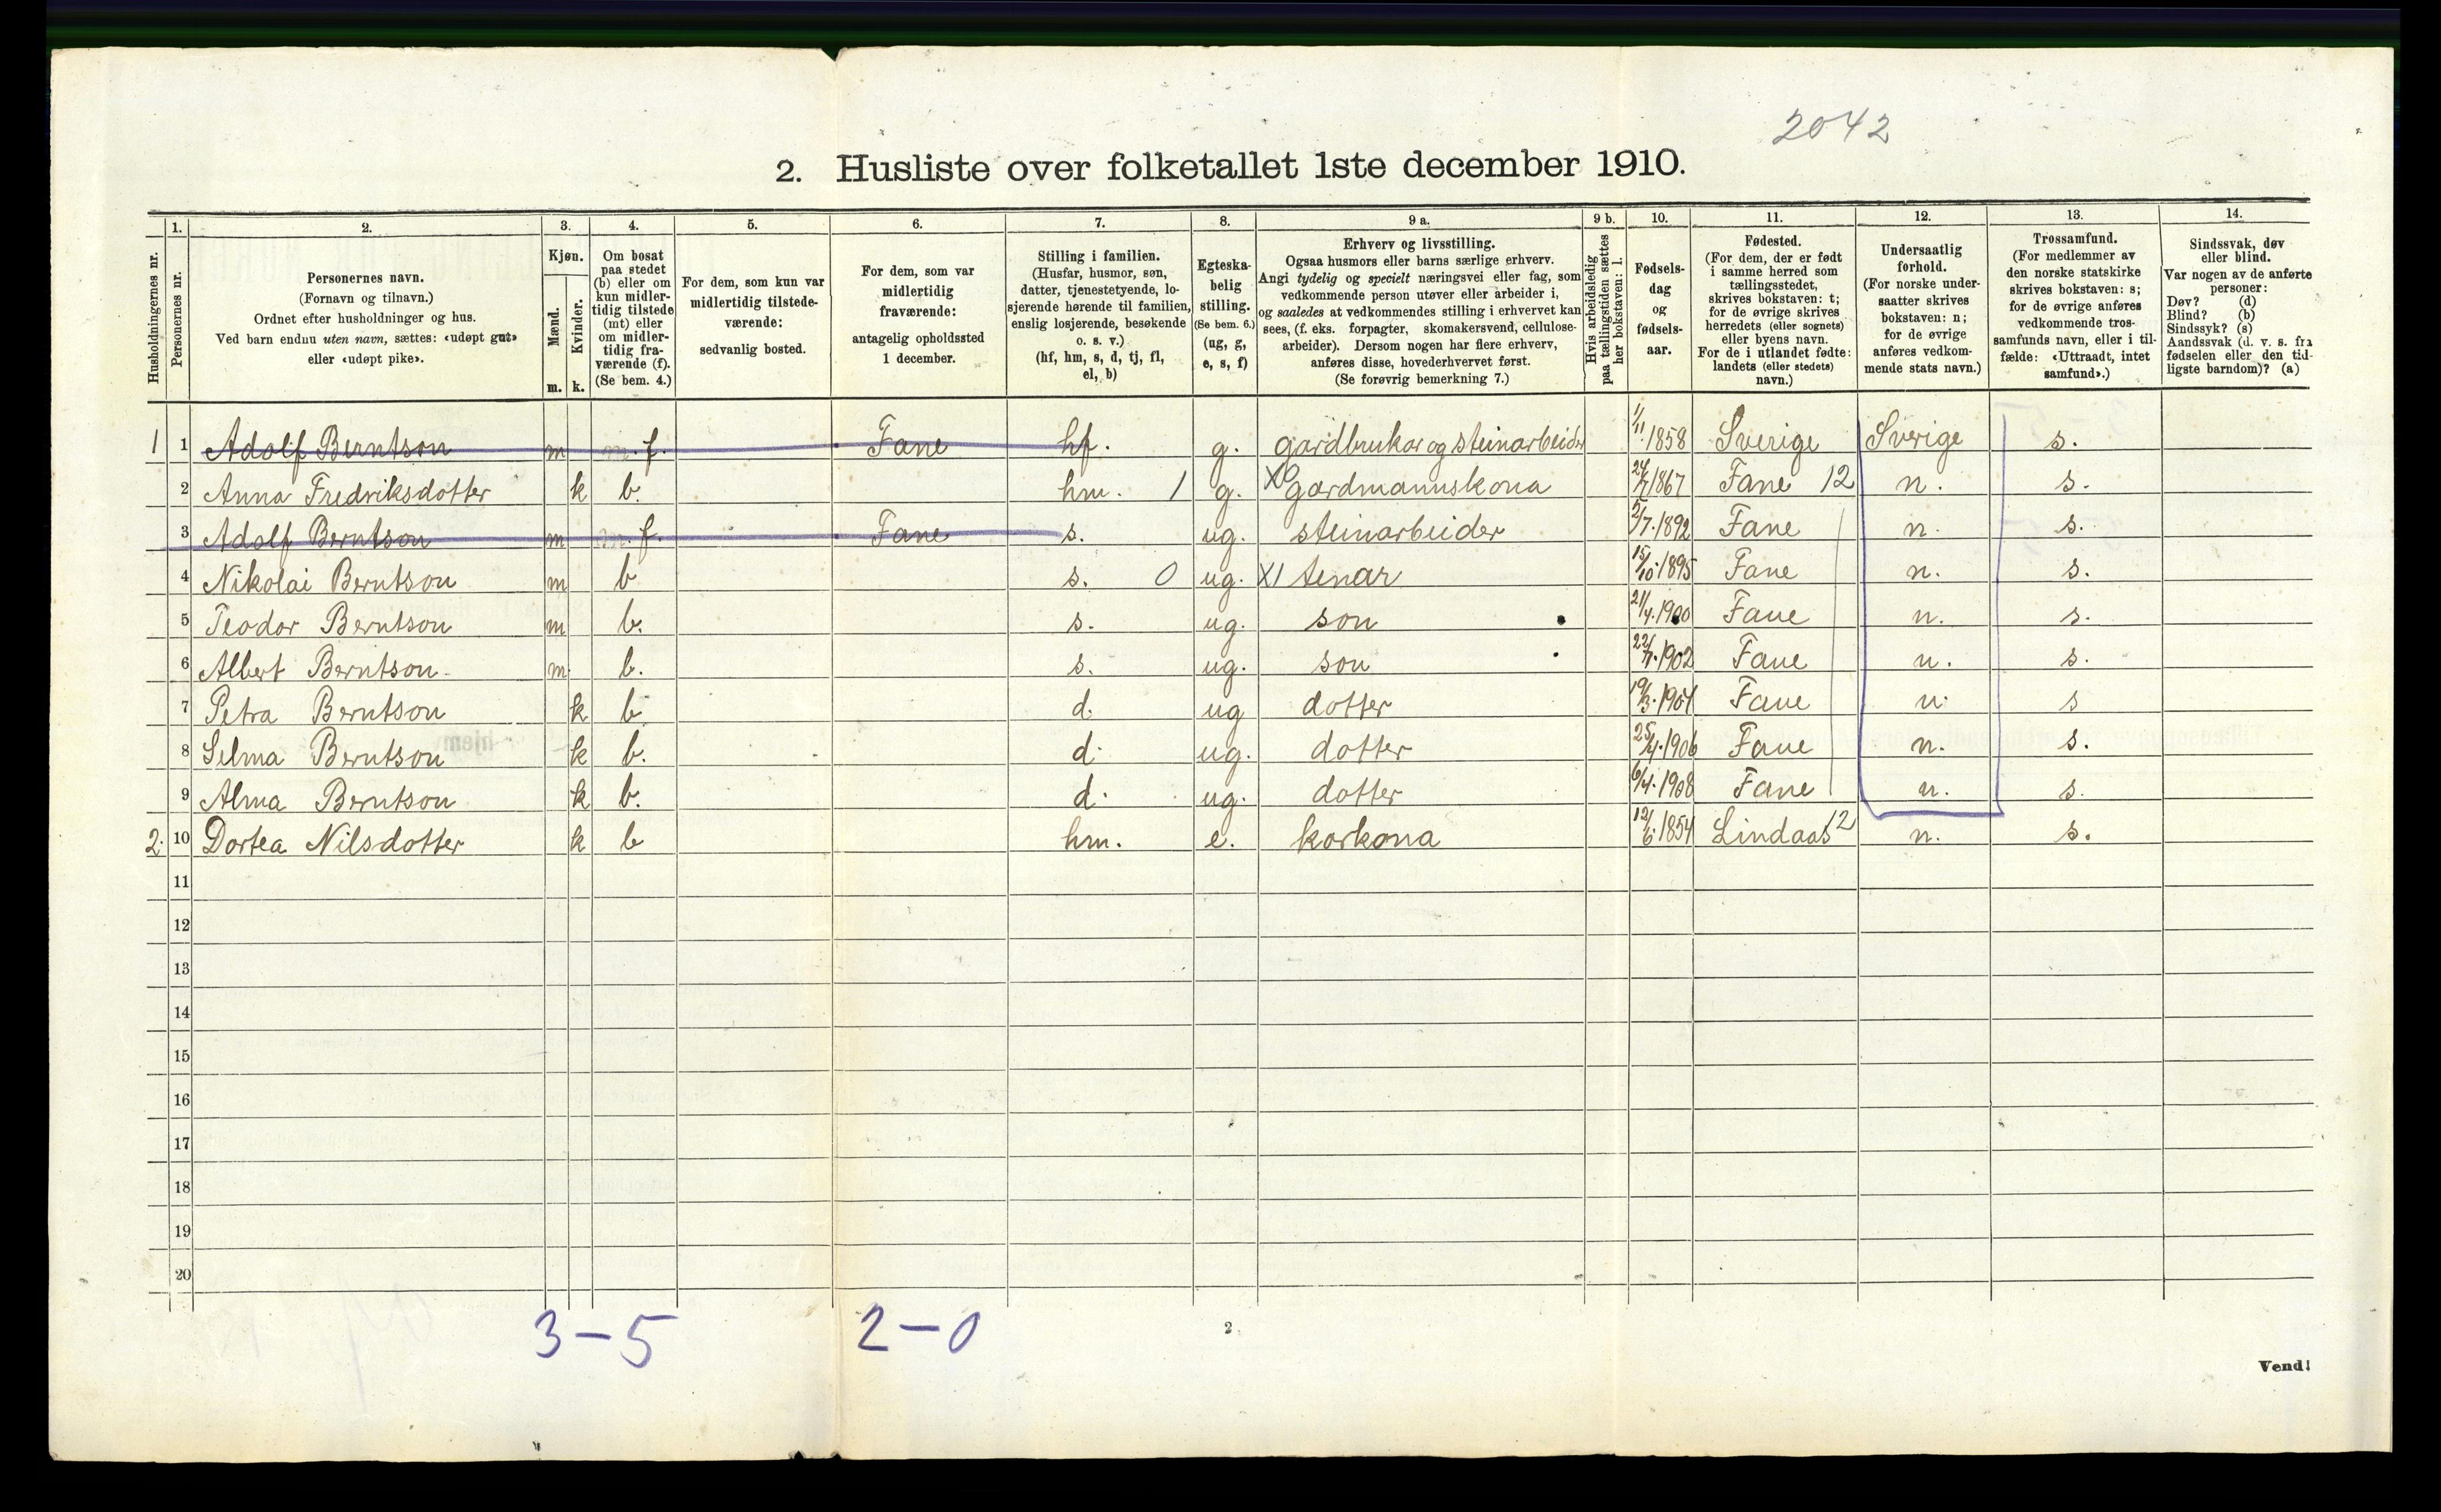 2042
2. Husliste over folketallet 1ste december 1910.
Husholdningernes nr.
1. Personernes nr.
2. Personernes navn. (Fornavn og tilnavn.) Ordnet efter husholdninger og hus. Ved barn endnu uten navn, sættes: «udøpt gut» eller «udøpt pike».
3. Kjøn. Mænd. m. Kvinder. k.
4. Om bosat paa stedet (b) eller om kun midlertidig tilstede (mt) eller om midlertidig fraværende (f). (Se bem. 4.)
5. For dem, som kun var midlertidig tilstedeværende: sedvanlig bosted.
6. For dem, som var midlertidig fraværende: antagelig opholdssted 1 december.
7. Stilling i familien. (Husfar, husmor, søn, datter, tjenestetyende, losjerende hørende til familien, enslig losjerende, besøkende o. s. v.) (hf, hm, s, d, tj, fl, el, b)
8. Egteskabelig stilling. (Se bem. 6.) (ug, g, e, s, f)
9 a. Erhverv og livsstilling. Ogsaa husmors eller barns særlige erhverv. Angi tydelig og specielt næringsvei eller fag, som vedkommende person utøver eller arbeider i, og saaledes at vedkommendes stilling i erhvervet kan sees, (f. eks. forpagter, skomakersvend, cellulosearbeider). Dersom nogen har flere erhverv, anføres disse, hovederhvervet først. (Se forøvrig bemerkning 7.)
9 b. Hvis arbeidsledig paa tællingstiden sættes her bokstaven: l.
10. Fødselsdag og fødselsaar.
11. Fødested. (For dem, der er født i samme herred som tællingsstedet, skrives bokstaven: t; for de øvrige skrives herredets (eller sognets) eller byens navn. For de i utlandet fødte: landets (eller stedets) navn.)
12. Undersaatlig forhold. (For norske undersaatter skrives bokstaven: n; for de øvrige anføres vedkommende stats navn.)
13. Trossamfund. (For medlemmer av den norske statskirke skrives bokstaven: s; for de øvrige anføres vedkommende trossamfunds navn, eller i tilfælde: «Uttraadt, intet samfund».)
14. Sindssvak, døv eller blind. Var nogen av de anførte personer: Døv? (d) Blind? (b) Sindssyk? (s) Aandssvak (d. v. s. fra fødselen eller den tidligste barndom)? (a)
1 1 Adolf Berntson m f. Fane hf. g. gardbrukar og steinarbeider 1/11 1858 Sverige Sverige s.
2 Anna Fredriksdotter k b. hm. 1 g. X0 gardmannskona 1867 Fane 12 n. s.
3 Adolf Berntson m f. Fane s. ug. steinarbeider 5/7.1892 Fane n. s.
4 Nikolai Berntson m b s. 0 ug. XI tenar 15/10.1895 Fane n. s.
5 Teodor Berntson m b. s. ug. son 21/4.1900 Fane n. s.
6 Albert Berntson m. b. s. ug. son 1902 Fane n. s.
7 Petra Berntson k b d. ug dotter 19/3.1904 Fane n. s
8 Selma Berntson k b. d. ug. dotter 25/4.1906 Fane n. s.
9 Alma Berntson k b. d. ug. dotter 6/4.1908 Fane n. s.
2. 10 Dortea Nilsdotter k b hm. e. korkona 12/6.1854 Lindaas 12 n. s.
11
12
13
14
15
16
17
18
19
20
3-5 2-0
2
Vend!